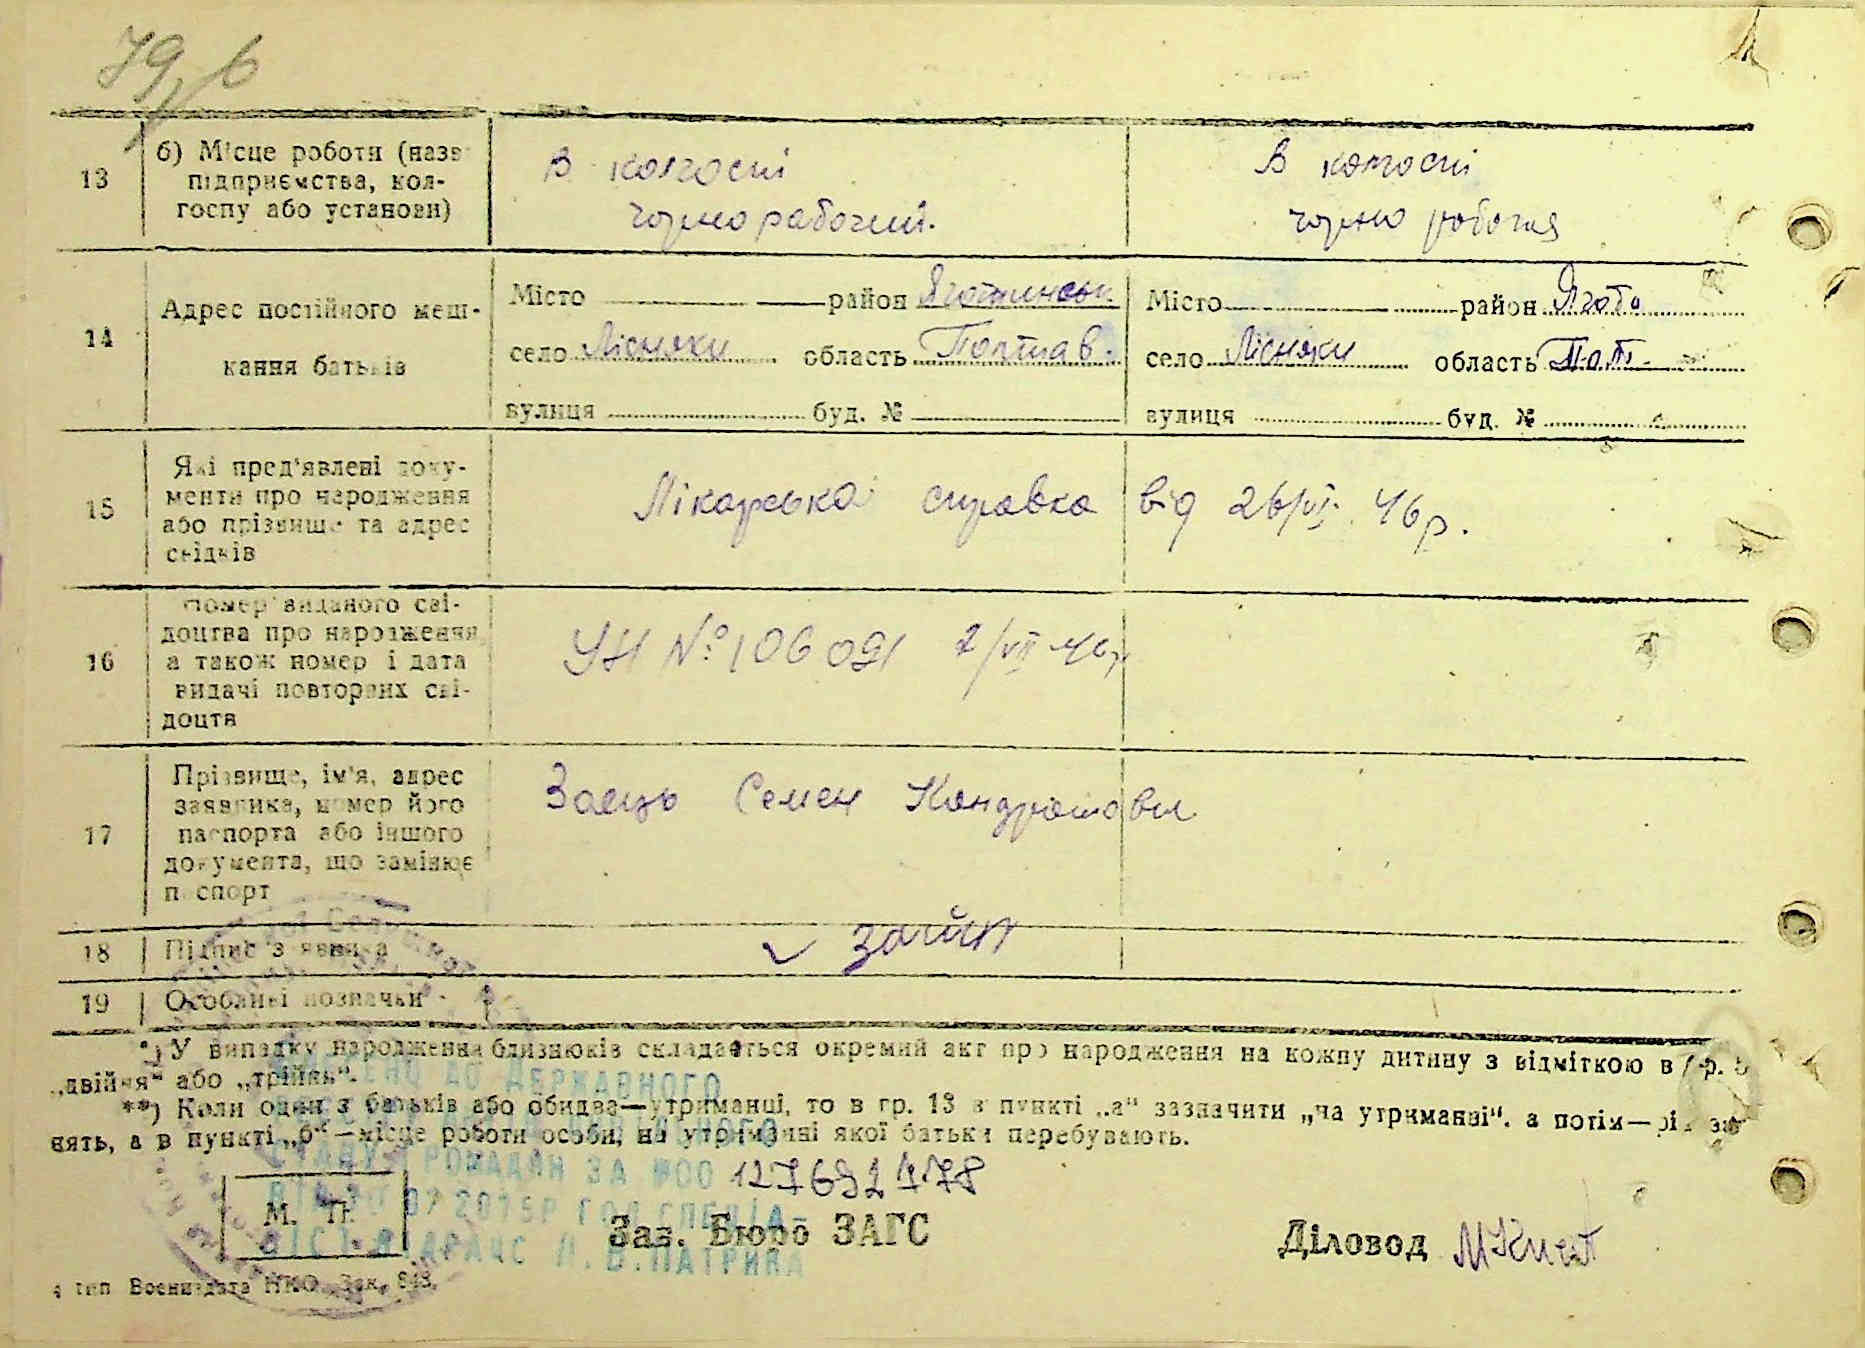 79, б
13 б) Місце роботи (назв В колгоспі В колгоспі
підприємства, кол-
госпу або установи) чорнорабочий. чорно робочая
14 Адрес постійного меш- Місто район Яготинськ. Місто район Ягот
кання батьків село Лісняки область Полтав. село Лісняки область Пол.
вулиця буд. № вулиця буд. №
15 Які пред'явлені доку-
менти про народження Лікарська справка від 26/VI. 46 р.
або прізвище та адрес
свідків
16 Номер виданого сві-
доцтва про народження УН № 106091 2/VII 46 р
а також номер і дата
видачі повторних сві-
доцтв
17 Прізвище, ім'я, адрес Заєць Семен Кондратови
заявника, номер його
паспорта або іншого
документа, що замінює
паспорт
18 Підпис заявника
19 Особливі позначки
*) У випадку народження близнюків складається окремий акт про народження на кожну дитину з відміткою в гр. 5
„двійня“ або „трійня“.
**) Коли один з батьків або обидва—утриманці, то в гр. 13 в пункті „а“ зазначити „на утриманні“, а потім—рід за-
нять, а в пункті „б“—місце роботи особи, на утриманні якої батьки перебувають.
ДО ДЕРЖАВНОГО
СТАНУ ГРОМАДЯН ЗА №00 127692478
М. П. Зав. Бюро ЗАГС Діловод
П. В. ПАТРИКА
4 тип Воениздата НКО. Зак. 848.